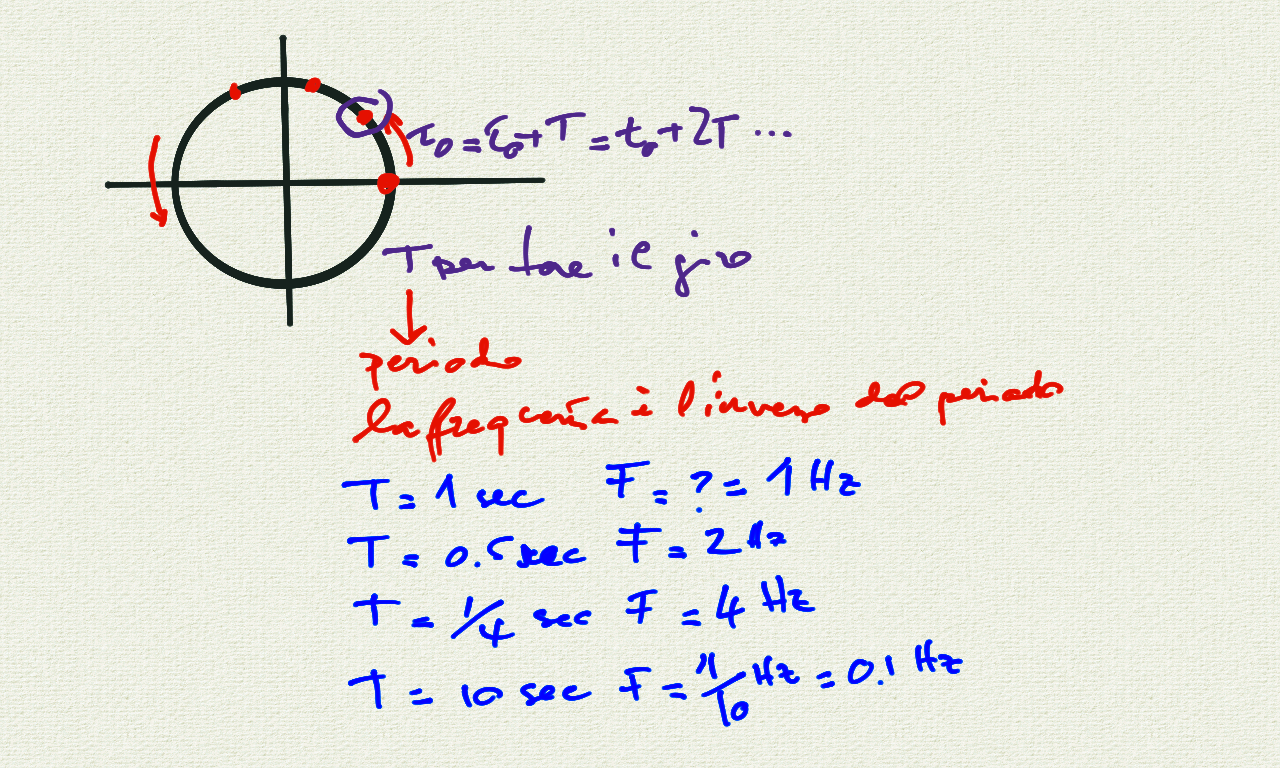 t₀ = t₀ + T = t₀ + 2T ...
T per fare il giro
periodo
la frequenza è l'inverso del periodo
T = 1 sec F = ? = 1 Hz
T = 0.5 sec F = 2 Hz
T = 1/4 sec F = 4 Hz
T = 10 sec F = 1/10 Hz = 0.1 Hz